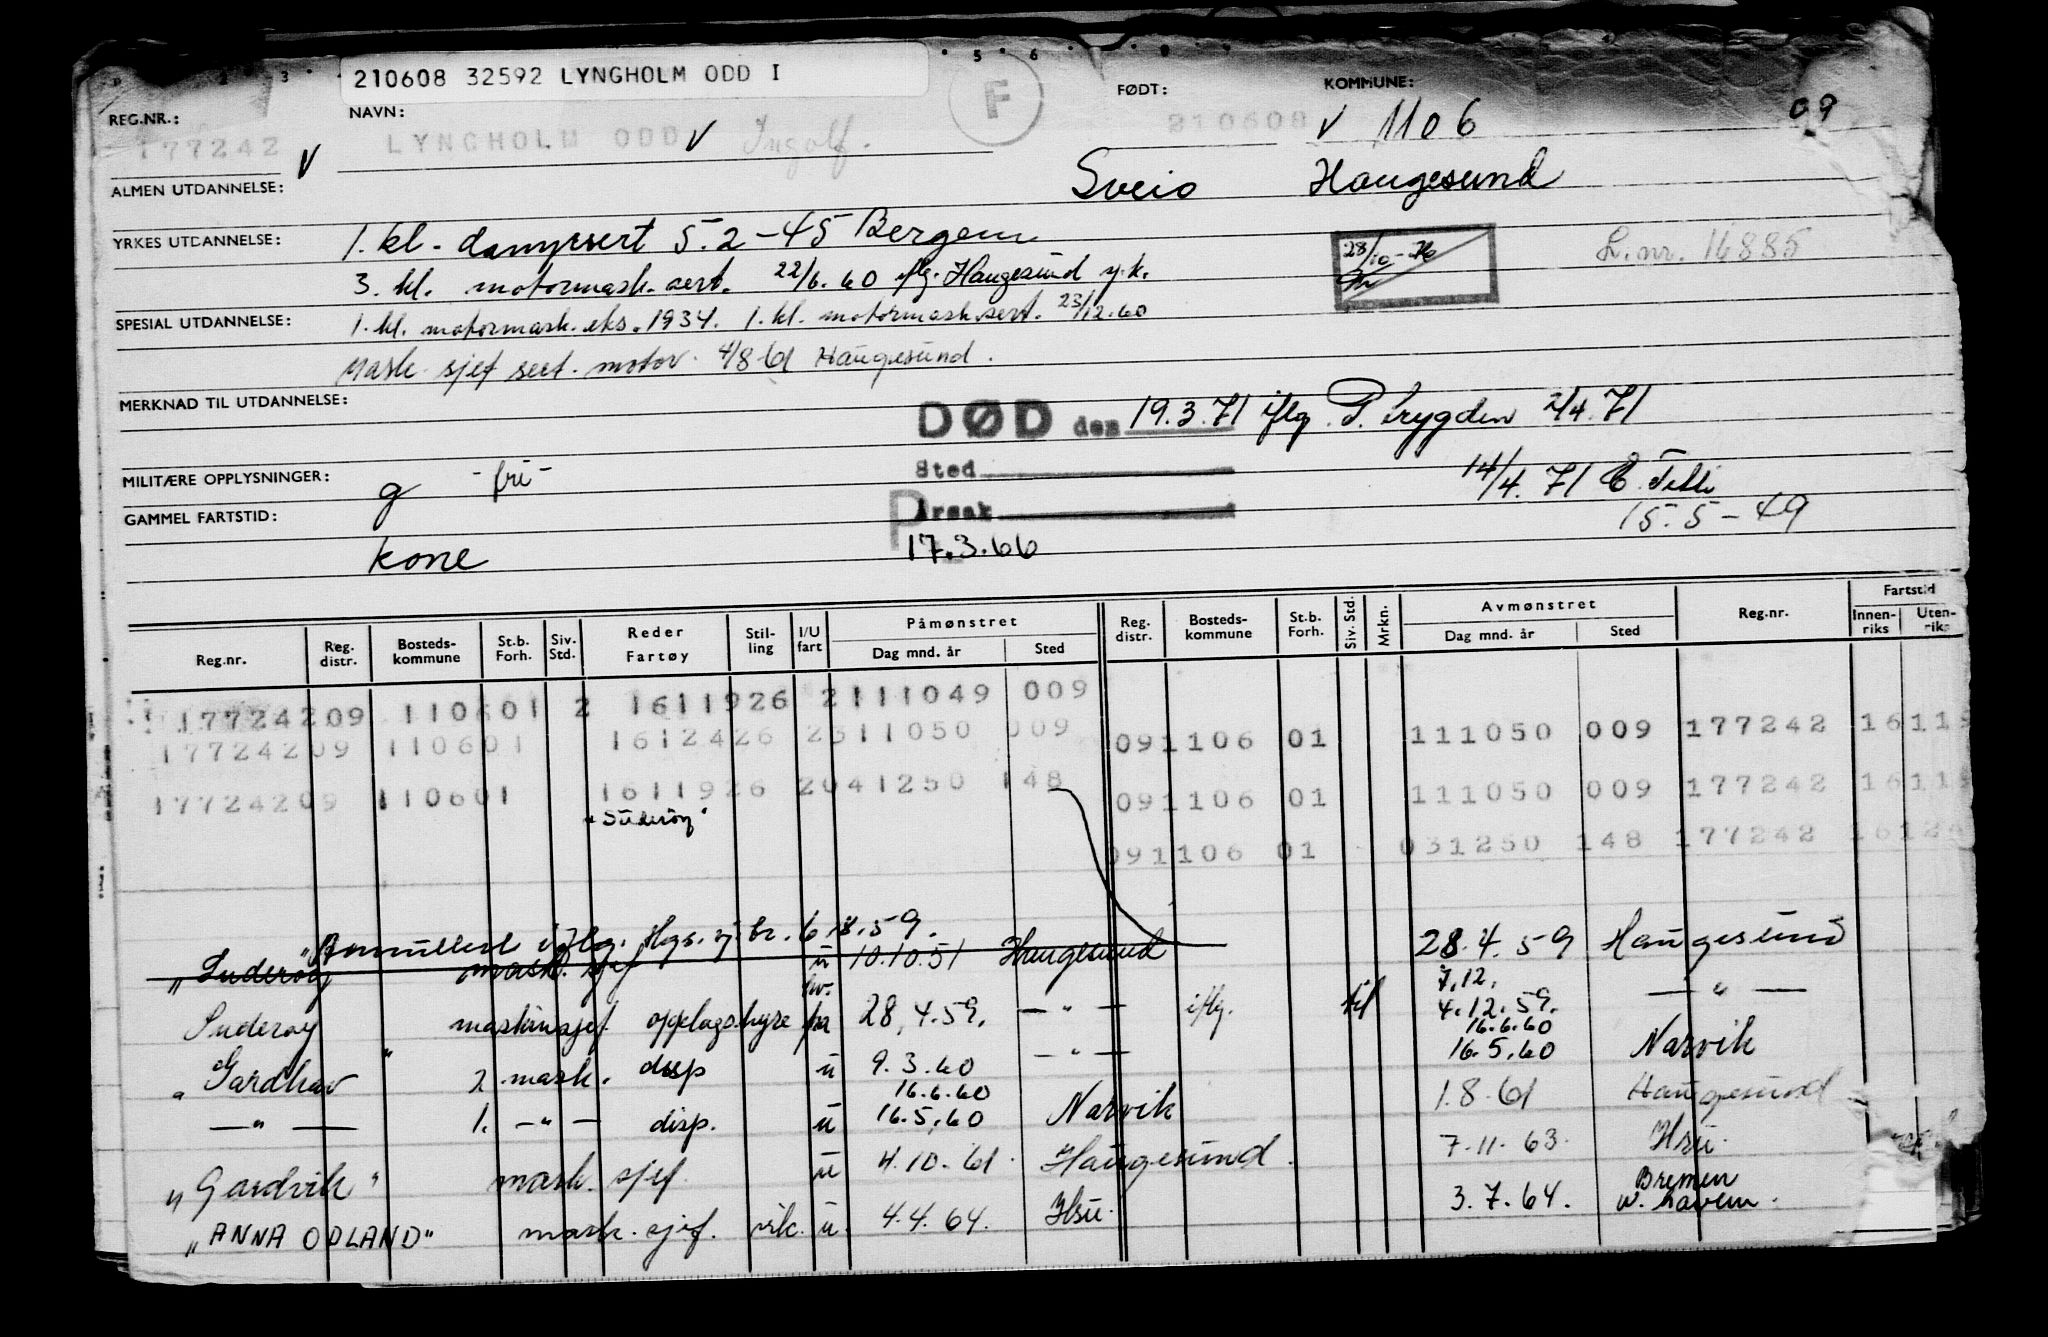 210608 32592 LYNGHOLM ODD I
REG.NR.: NAVN: FØDT: KOMMUNE:
177242 LYNGHOLM ODD Ingolf. F 210608 1106 09
ALMEN UTDANNELSE: Sveio Haugesund
YRKES UTDANNELSE: 1. kl. dampsert 5.2-45 Bergen
28/10-76 L.nr. 16885
3. kl. motormask. sert. 22/6.60 iflg. Haugesund
SPESIAL UTDANNELSE: 1. kl. motormask. eks. 1934. 1. kl. motormask.sert. 23/12.60
Mask. sjef sert. motor. 4/8 61 Haugesund.
MERKNAD TIL UTDANNELSE:
DØD den 19.3.71 iflg. P. trygden 2/4.71
MILITÆRE OPPLYSNINGER: g - fri - Sted 14/4.71
GAMMEL FARTSTID: Årsak 15.5-49
kone 17.3.66
Reg.nr. Reg. distr. Bosteds-kommune St.b. Forh. Siv. Std. Reder Fartøy Stil-ling I/U fart Påmønstret Dag mnd. år Sted Reg. distr. Bosteds-kommune St.b. Forh. Siv. Std. Mrkn. Avmønstret Dag mnd. år Sted Reg.nr. Fartstid Innen-riks Uten-riks
17724209 110601 2 1611926 2111049 009
17724209 110601 1612426 2311050 009 091106 01 111050 009 177242 16119
17724209 110601 1611926 2041250 148 091106 01 111050 009 177242 16119
"Suderøy"
091106 01 031250 148 177242 16124
Annullert iflg. 6.8.59.
"Suderøy mask. sjef u 10.10.51 Haugesund 28.4.59 Haugesund
7.12.
Suderøy maskinsjef oppelagshyre 28.4.59. - " - iflg. til 4.12.59. - " -
16.6.60
"Gardhav" 2. mask. disp u 9.3.60 - " - 16.5.60 Narvik
16.6.60
- " - 1. - " - disp. u 16.5.60 Narvik 1.8.61 Haugesund
"Gardvik" mask. sjef u 4.10.61. Haugesund. 7.11.63. Hsu.
Bremen
"ANNA ODLAND" mask. sjef. vik. u. 4.4.64. Hsu. 3.7.64. W. haven.